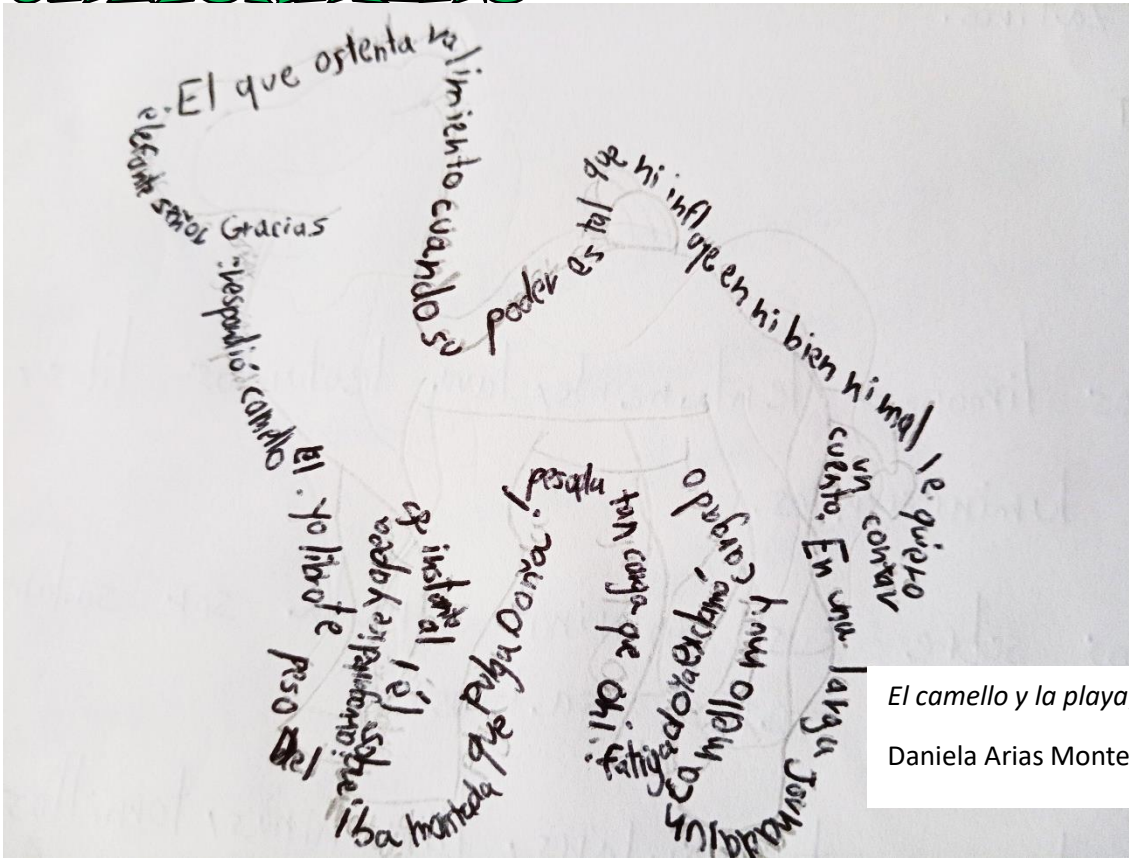 El que ostenta valimiento cuando su
poder es tal
que ni influye en ni bien ni mal
le quiero
contar
un
cuento. En una larga Jornada un
camello muy
cargado
exclamó ya
fatigado
¡oh! que carga tan
pesada!
Doña pulga que montada iba
sobre él
al instante
yo libro te
peso
El camello respondió:
Gracias señor elefante.
El camello y la playa
Daniela Arias Monte